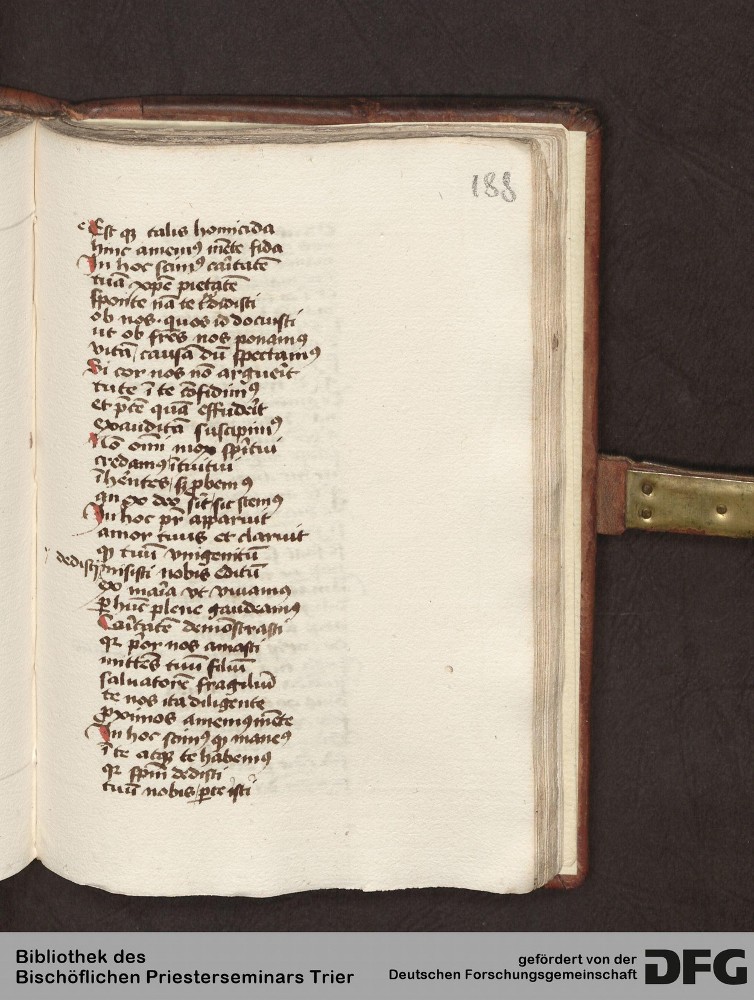 188
Est qz talis homicida
hinc amemꝰ mēte fida
In hoc scimꝰ caritatē
tuā xpē pietatē
sponte nā te tͬdidisti
ob nos · quos id docuisti
ut ob frēs nos ponamꝰ
vitā / causā dū spectamꝰ
Si cor nos nō arguerit
tu te ī te cōfidimꝰ
et pͨte quā effuderit
exauditā suscipimꝰ
Nō omī mox spiritui
credamꝰ ītuitui
īherētes / sꝫ ꝓbemꝰ
qui ex deo sūt sic stemꝰ
In hoc pͬ apparuit
amor tuus et claruit
qꝫ tuū vnigenitū
dedisti misisti nobis editū
ex maria vt viuamꝰ
ꝑ hūc plene gaudeamꝰ
Caritatē demōstrasti
qꝛ pͥor nos amasti
mittēs tuū filiū
saluatorē fragiliū
te nos ita diligente
ꝓximos amemꝰ mēte
In hoc scimꝰ qꝫ manes
ī te atqꝫ te habemꝰ
qꝛ spm̄ dedisti
tuū nobis / ꝑ te isti
Bibliothek des
Bischöflichen Priesterseminars Trier
gefördert von der
Deutschen Forschungsgemeinschaft
DFG